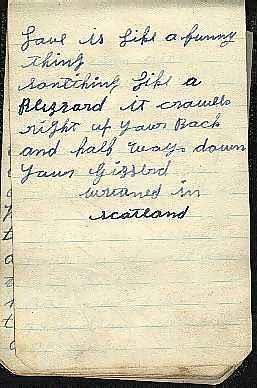 Love is Like a funny
thing
Somthing Like a
Blizzard it crawels
right up your Back
and half ways down
your Gizzerd
in
scotland